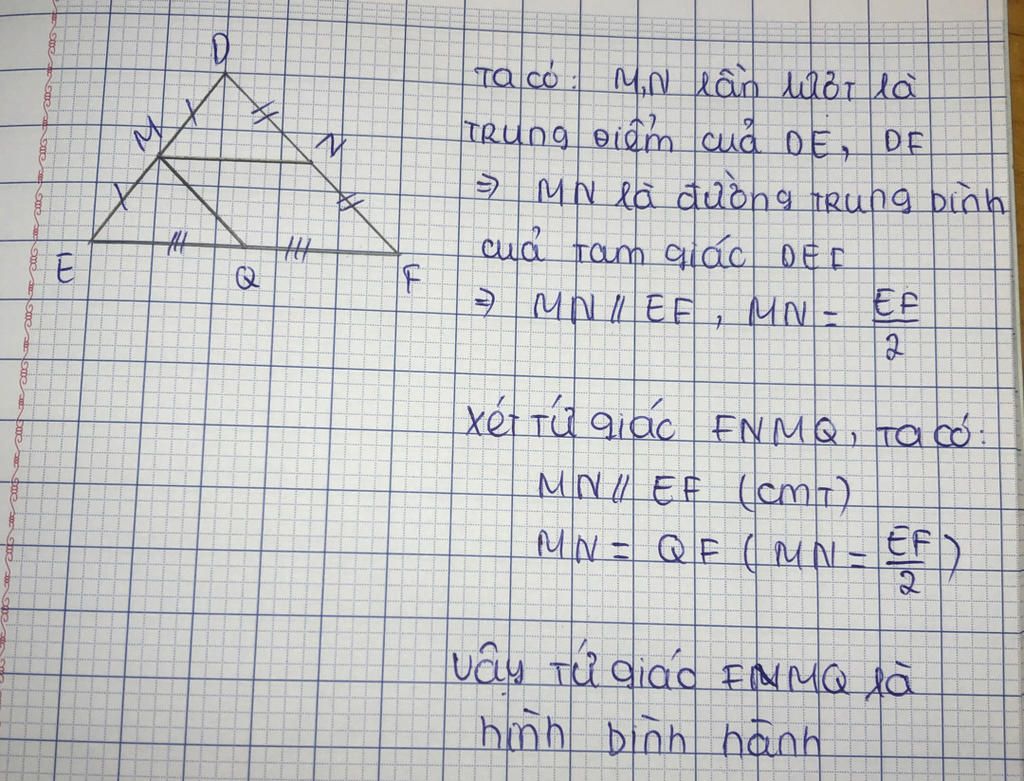 D
M
N
E
Q
F
Ta có: M,N lần lượt là
trung điểm của DE, DF
⇒ MN là đường trung bình
của tam giác DEF
⇒ MN // EF, MN = EF/2
Xét tứ giác FNMQ, ta có:
MN // EF (cmt)
MN = QF (MN = EF/2)
Vậy tứ giác FNMQ là
hình bình hành